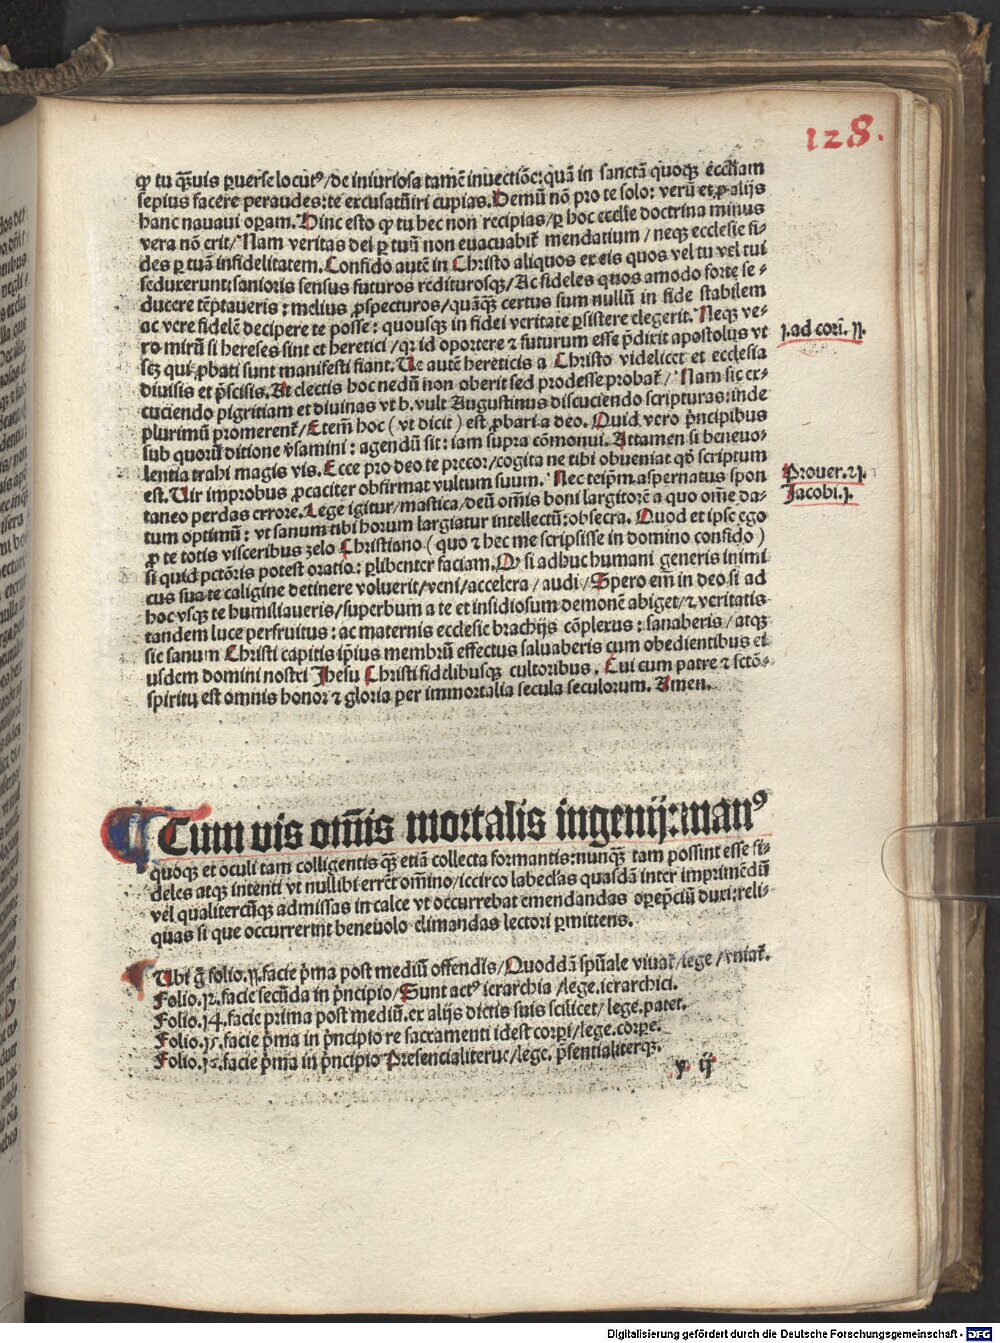 128.
ꝙ tu q̃uis ꝑuerse locut⁹/de iniuriosa tamē inuectiõe: quā in sanctā quoqꝫ eccl̃iam
sepius facere peraudes: te excusatũiri cupias. Demũ nõ pro te solo: verũ et ꝓ alijs
hanc nauaui oꝑam. Hinc esto ꝙ tu hec non recipias/ꝑ hoc eccl̃ie doctrina minus
vera nõ crit/ Nam veritas dei ꝑ tuũ non euacuabit̃ mendatium / neqꝫ ecclesie fi⸗
des ꝑ tuã infidelitatem. Confido autē in Christo aliquos ex eis quos vel tu vel tui
seduxerunt: sanioris sensus futuros redituros̃qꝫ/ Ac fideles quos amodo forte se⸗
ducere tẽptaueris: melius ꝓspecturos/quãqꝫ certus sum nullũ in fide stabilem
ac vere fidelẽ decipere te posse: quousqꝫ in fidei veritate ꝑsistere elegerit. Neqꝫ ve⸗
ro mirũ si hereses sint et heretici /qꝛ id oportere ⁊ futurum esse p̃dixit apostolus vt
scꝫ qui ꝓbati sunt manifesti fiant. Ue autẽ hereticis a Christo videlicet et ecclesia
diuisis et p̃scisis. At electis hoc nedũ non oberit sed prodesse probat̃ / Nam sic ex⸗
cuciendo pigritiam et diuinas vt b. vult Augustinus discuciendo scripturas: inde
plurimũ promerent̃/ Etem̃ hoc ( vt dicit ) est ꝓbari a deo. Quid vero p̃ncipibus
sub quorũ ditione v̓samini: agendũ sit: iam supra cõmonui. Attamen si beneuo⸗
lentia trahi magis vis. Ecce pro deo te precor/cogita ne tibi obueniat qd̓ scriptum
est. Uir improbus ꝓcaciter obfirmat vultum suum. Nec teip̃m aspernatus spon
taneo perdas errore. Lege igitur/mastica/deũ om̃is boni largitorẽ a quo om̃e da⸗
tum optimũ: vt sanum tibi horum largiatur intellectũ: obsecra. Quod et ipse ego
ꝓ te totis visceribus zelo Christiano ( quo ⁊ hec me scripsisse in domino confido )
si quid pctõris potest oratio: ꝑlibenter faciam. Qꝫ si adhuc humani generis inimi
cus sua te caligine detinere voluerit/veni/accelera / audi / Spero em̃ in deo si ad
hoc vsqꝫ te humiliaueris/superbum a te et insidiosum demonẽ abiget/⁊ veritatis
tandem luce perfruitus: ac maternis ecclesie brachijs cõplexus: sanaberis / atqꝫ
sic sanum Christi capitis ip̃ius membrũ effectus saluaberis cum obedientibus ei
usdem domini nostri Jhesu Christi fidelibusqꝫ cultoribus. Cui cum patre ⁊ sctõ⸗
spiritu est omnis honor ⁊ gloria per immortalia secula seculorum. Amen.
j. ad corī. xj.
Prouer. 21.
Jacobi. j.
¶ Cum vis om̃is mortalis ingenij: man⁹
quoqꝫ et oculi tam colligentis q̃ꝫ etiã collecta formantis: nunq̃ꝫ tam possint esse fi⸗
deles atqꝫ intenti vt nullibi erret om̃ino/iccirco labeclas quasdã inter imprimẽdũ
vel qualitercũqꝫ admissas in calce vt occurrebat emendandas oꝑepciũ duxi: reli⸗
quas si que occurrerint beneuolo elimandas lectori ꝑmittens.
¶ Ubi g̃ folio. 11. facie p̃ma post mediũ offendis/Quoddã spũale viuat̃/lege /vniat̃.
Folio. 12. facie secũda in p̃ncipio/Sunt act⁹ ierarchia /lege. ierarchici.
Folio. 14. facie prima post mediũ. ex alijs dictis suis scilicet/ lege. patet.
Folio. 15. facie p̃ma in p̃ncipio re sacramenti idest corpi/lege. corpe.
Folio. 16. facie p̃ma in p̃ncipio Presencialiterue/lege. p̃sentialiterqꝫ.
y ij
Digitalisierung gefördert durch die Deutsche Forschungsgemeinschaft - DFG